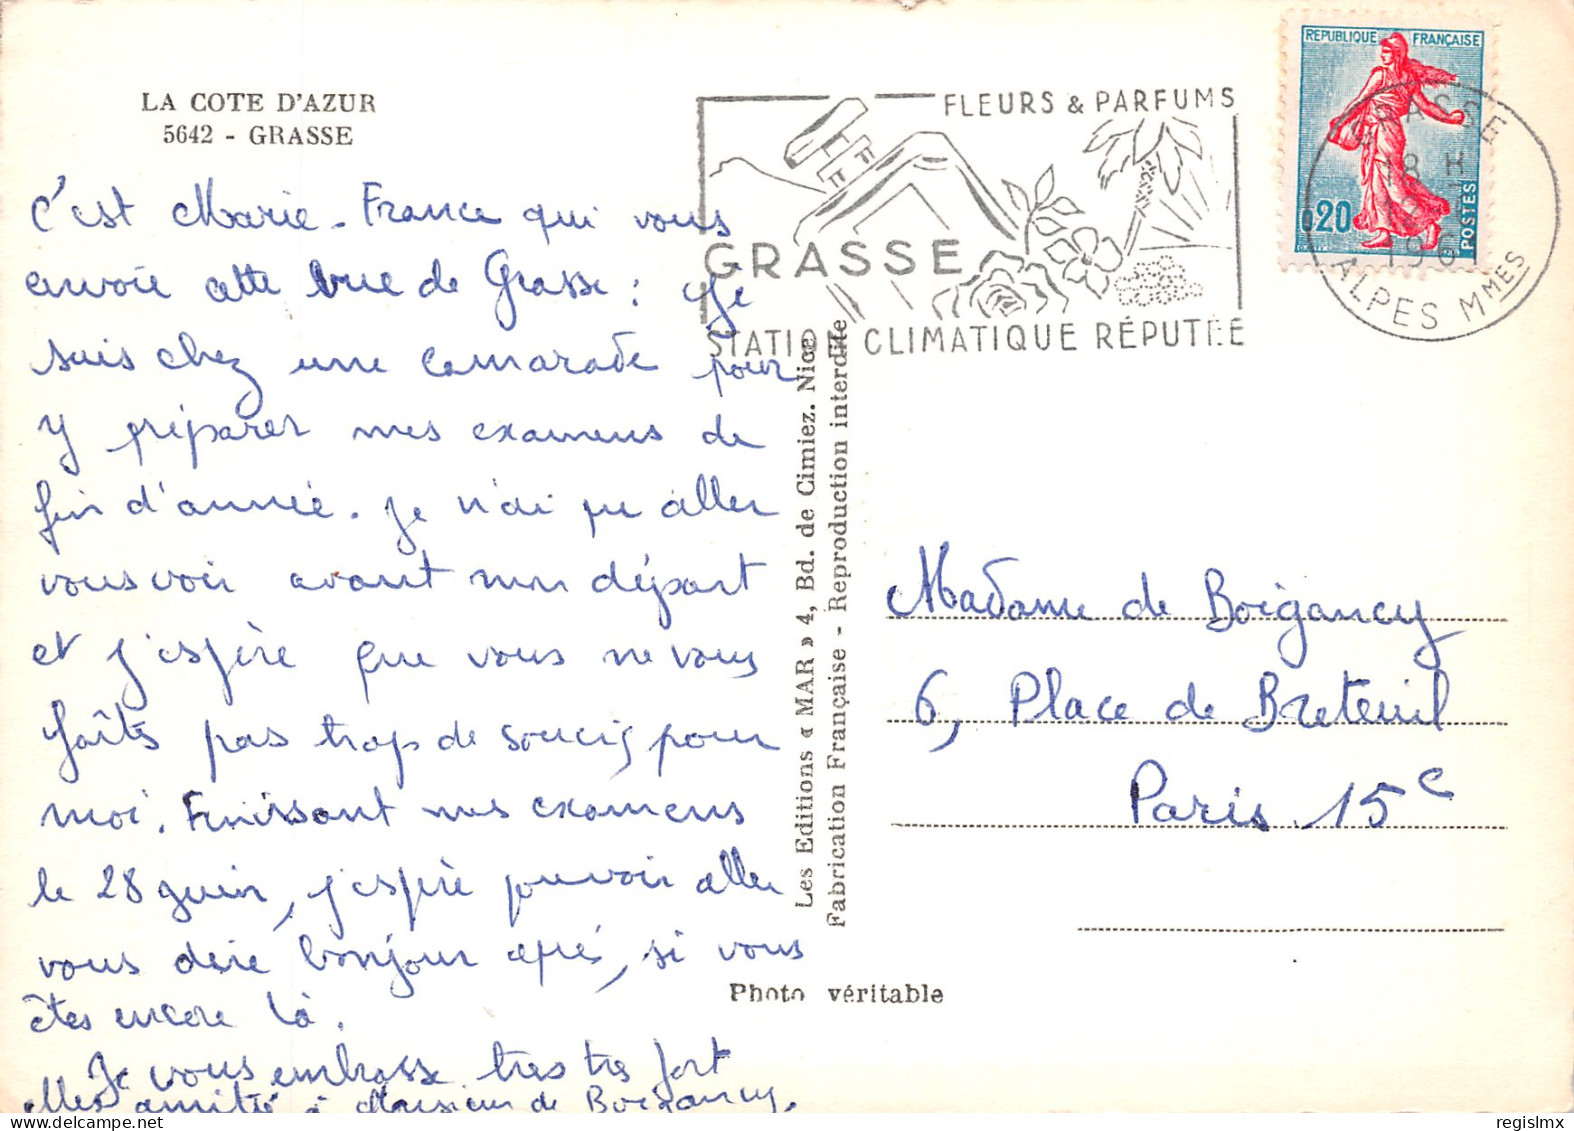 LA COTE D'AZUR
5642 - GRASSE
C'est Marie-France qui vous
envoie cette vue de Grasse : Je
suis chez une camarade pour
y préparer mes examens de
fin d'année. Je n'ai pu aller
vous voir avant mon départ
et j'espère que vous ne vous
faîtes pas trop de soucis pour
moi. Finissant mes examens
le 28 juin, j'espère pouvoir aller
vous dire bonjour après, si vous
êtes encore là.
Je vous embrasse très très fort
Mes amitiés à Monsieur de Boigancy.
FLEURS & PARFUMS
GRASSE
STATION CLIMATIQUE RÉPUTÉE
REPUBLIQUE FRANÇAISE
0,20
POSTES
GRASSE
18 H
ALPES MMES
Les Editions « MAR » 4, Bd. de Cimiez. Nice
Fabrication Française - Reproduction interdite
Madame de Boigancy
6, Place de Breteuil
Paris 15e
Photo véritable
regislmx